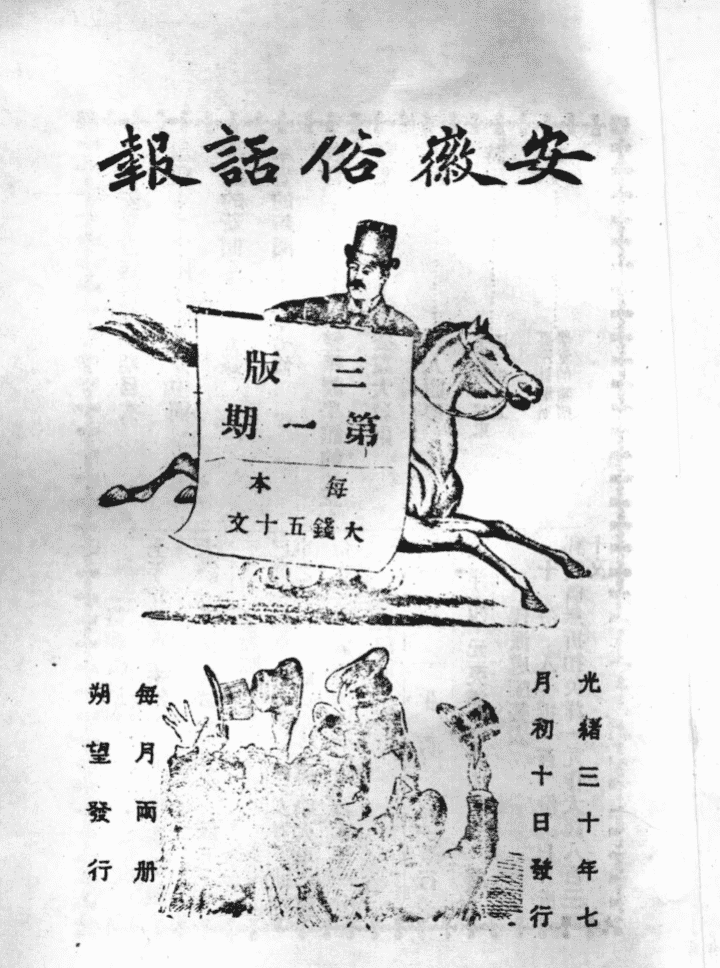 安徽俗話報
三版
第一期
每本
大錢五十文
光緒三十年七
月初十日發行
每月兩册
朔望發行